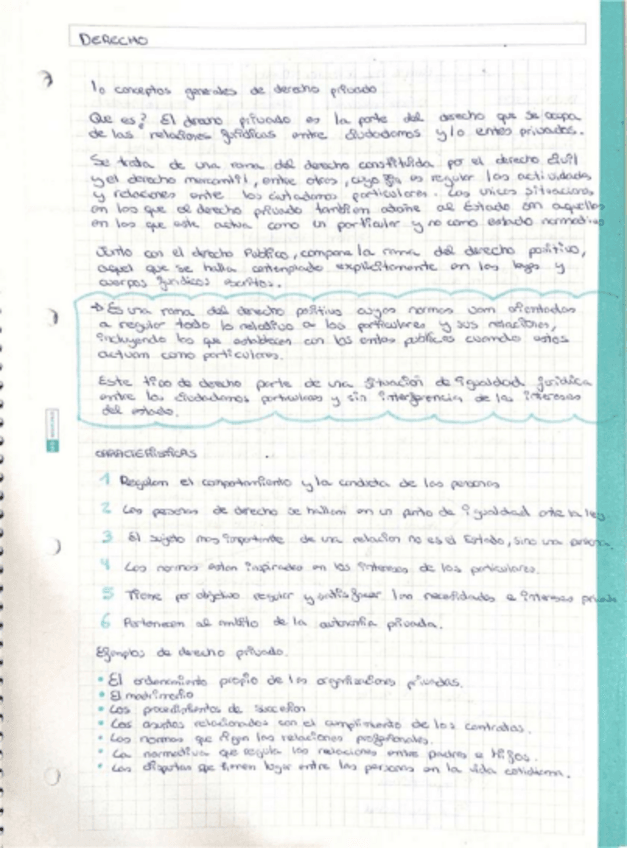 DERECHO
1º conceptos generales de derecho privado
Que es? El derecho privado es la parte del derecho que se ocupa
de las relaciones jurídicas entre ciudadamos y/o entes privados.
Se trata de una rama del derecho constituida por el derecho civil
y el derecho mercantil, entre otros, cuyo fin es regular las actividades
y relaciones entre los ciutadamos particulares. Las unicas situaciones
en las que el derecho privado tambien atañe al Estado son aquellas
en las que este actua como un particular y no como estado normativo
Junto con el derecho Publico, compone la rama del derecho positivo,
aquel que se halla contemplado explícitamente en las leyes y
cuerpos jurídicos escritos.
→ Es una rama del derecho positivo cuyas normas van orientadas
a regular todo lo relativo a los particulares y sus relaciones,
incluyendo las que establecen con los entes públicos cuando estos
actuan como particulares.
Este tipo de derecho parte de una situación de igualdad jurídica
entre los ciudadanos particulares y sin interferencia de los intereses
del estado.
CARACTERÍSTICAS
1 Regulan el comportamiento y la conducta de las personas
2 Las personas de derecho se hallan en un punto de igualdad ante la ley
3 El sujeto mas importante de una relacion no es el Estado, sino una persona.
4 Las normas estan inspiradas en los intereses de los particulares.
5 Tiene por objetivo regular y satisfacer las necesidades e intereses privado
6 Pertenecen al ambito de la autonomía privada.
Ejemplos de derecho privado.
• El ordenamiento propio de las organizaciones privadas.
• El matrimonio
• Los procedimientos de sucesion
• Los asuntos relacionados con el cumplimento de los contratos.
• Las normas que rigen las relaciones profesionales.
• La normativa que regula las relaciones entre padres e hijos.
• Las disputas que tienen lugar entre las personas en la vida cotidiana.